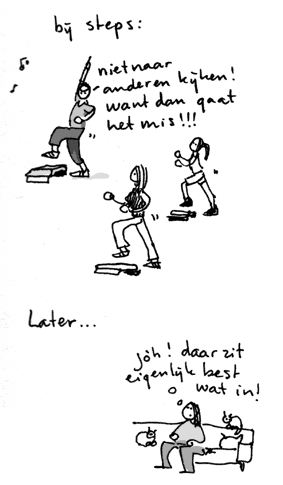 bij steps:
niet naar
anderen kijken!
want dan gaat
het mis!!!
Later...
jôh! daar zit
eigenlijk best
wat in!